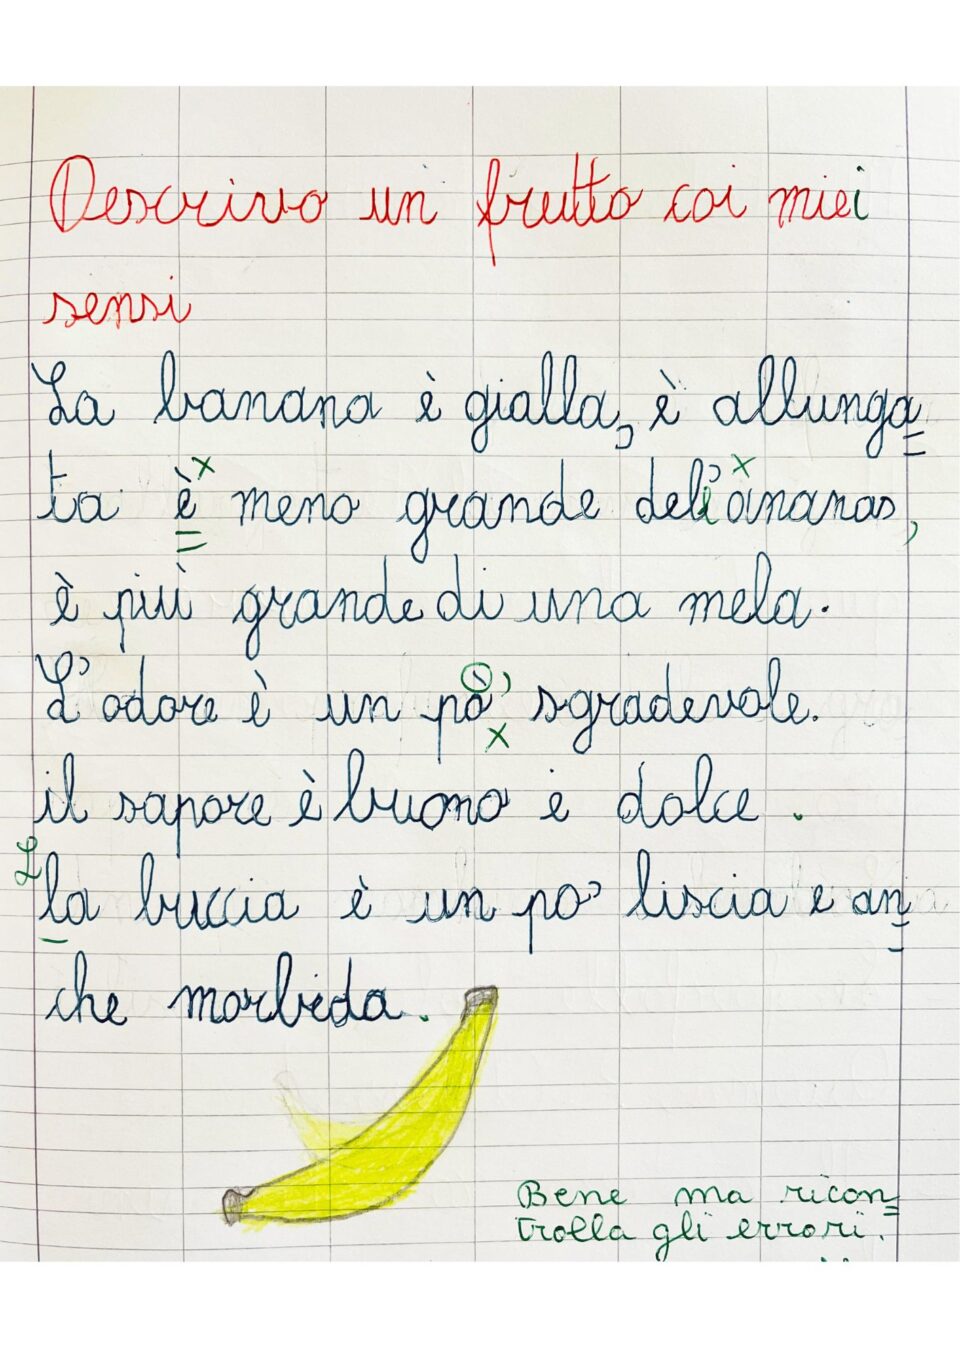 Descrivo un frutto coi miei
sensi
La banana è gialla, è allunga=
ta è meno grande dell'ananas,
è più grande di una mela.
L'odore è un pò' sgradevole.
il sapore è buono e dolce.
L
la buccia è un po' liscia e an=
che morbida.
Bene ma ricon=
trolla gli errori.